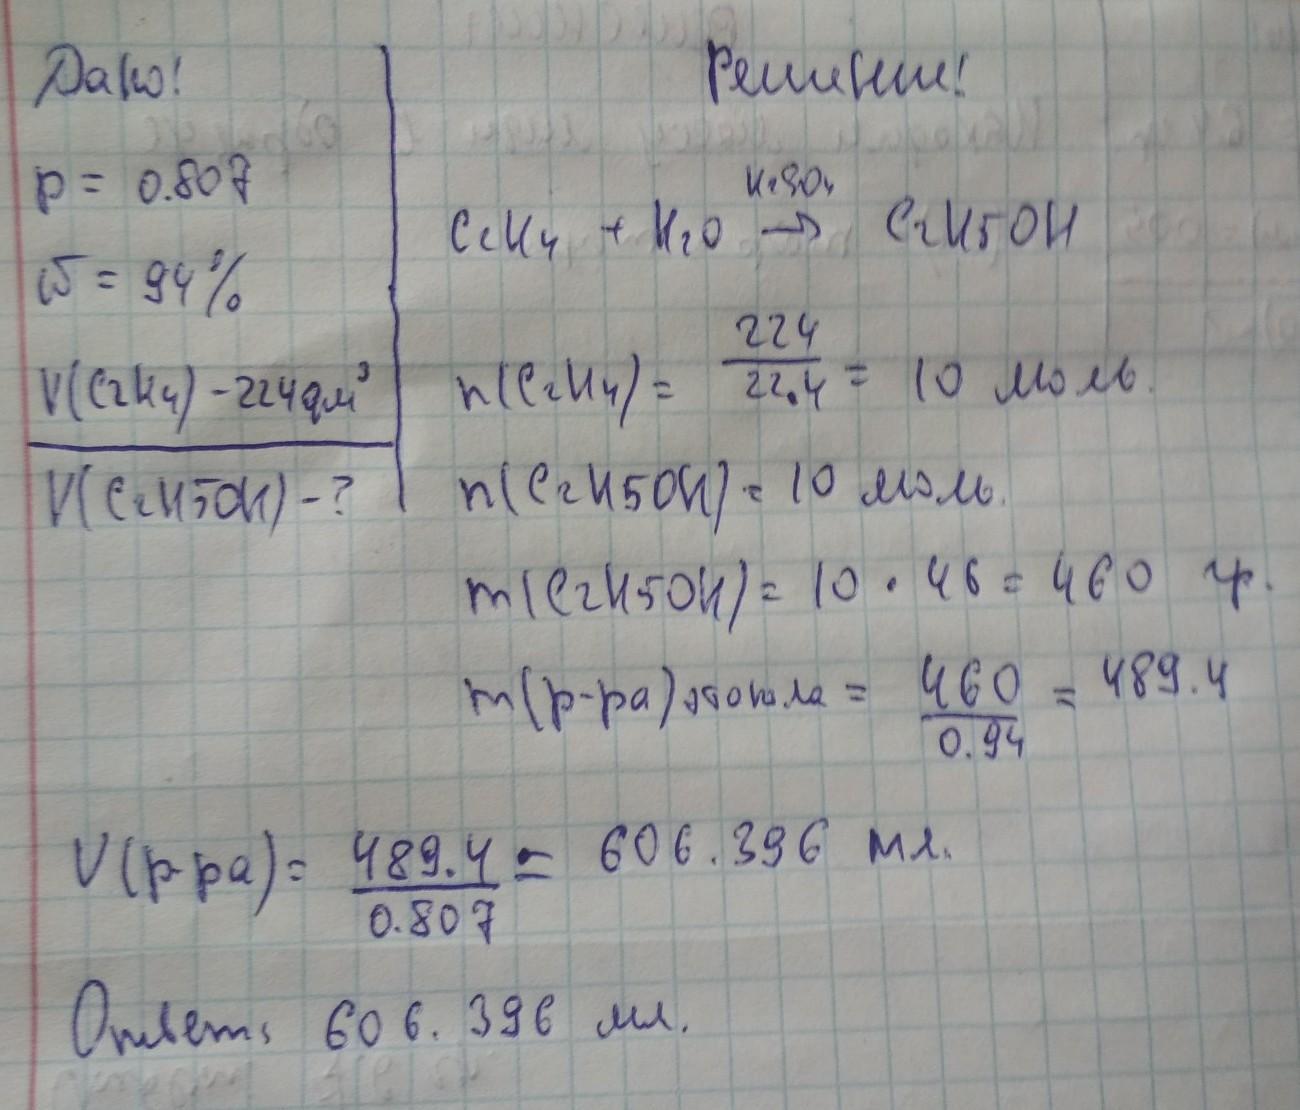 Дано!
p = 0.807
ω = 94%
V(C2H4) - 224 дм³
V(C2H5OH) - ?
Решение!
C2H4 + H2O → C2H5OH
H2SO4
n(C2H4) = 224 / 22.4 = 10 моль.
n(C2H5OH) = 10 моль.
m(C2H5OH) = 10 · 46 = 460 гр.
m(р-ра) этанола = 460 / 0.94 = 489.4
V(р-ра) = 489.4 / 0.807 = 606.396 мл.
Ответ: 606.396 мл.